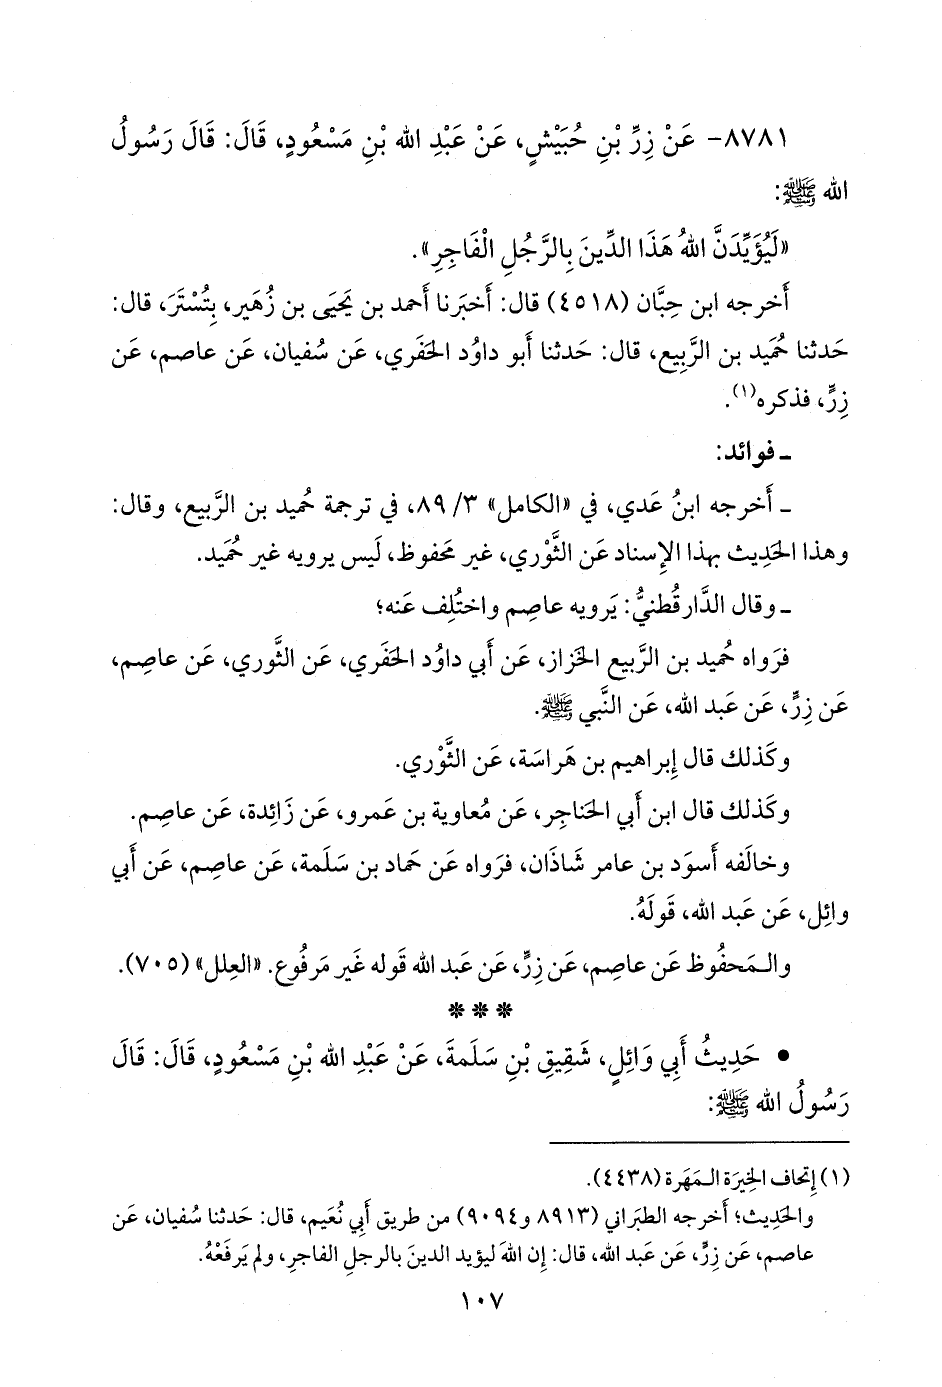 ٨٧٨١- عَنْ زِرِّ بْنِ حُبَيْشٍ، عَنْ عَبْدِ الله بْنِ مَسْعُودٍ، قَالَ: قَالَ رَسُولُ
الله ﷺ:
«لَيُؤَيِّدَنَّ اللهُ هَذَا الدِّينَ بِالرَّجُلِ الْفَاجِرِ».
أَخرجه ابن حِبَّان (٤٥١٨) قال: أَخبَرنا أَحمد بن يَحيَى بن زُهَير، بِتُسْتَرَ، قال:
حَدثنا حُمَيد بن الرَّبِيع، قال: حَدثنا أَبو داوُد الحَفَري، عَن سُفيان، عَن عاصم، عَن
زِرٍّ، فذكره(١).
ـ فوائد:
ـ أَخرجه ابنُ عَدي، في «الكامل» ٣/ ٨٩، في ترجمة حُميد بن الرَّبيع، وقال:
وهذا الحَدِيث بهذا الإِسناد عَن الثَّوْري، غير مَحفوظ، لَيس يرويه غير حُمَيد.
ـ وقال الدَّارقُطنيُّ: يَرويه عاصِم واختُلِف عَنه؛
فرَواه حُميد بن الرَّبيع الخَزاز، عَن أَبي داوُد الحَفَري، عَن الثَّوري، عَن عاصِم،
عَن زِرٍّ، عَن عَبد الله، عَن النَّبي ﷺ.
وكَذلك قال إِبراهيم بن هَراسَة، عَن الثَّوْري.
وكَذلك قال ابن أَبي الحَناجِر، عَن مُعاوية بن عَمرو، عَن زَائِدة، عَن عاصِم.
وخالَفه أَسوَد بن عامر شَاذَان، فرَواه عَن حَماد بن سَلَمة، عَن عاصِم، عَن أَبي
وائِل، عَن عَبد الله، قَولَهُ.
والـمَحفُوظ عَن عاصِم، عَن زِرٍّ، عَن عَبد الله قوله غَير مَرفُوع. «العِلل» (٧٠٥).
* * *
• حَدِيثُ أَبِي وَائِلٍ، شَقِيقِ بْنِ سَلَمةَ، عَنْ عَبْدِ الله بْنِ مَسْعُودٍ، قَالَ: قَالَ
رَسُولُ الله ﷺ:
(١) إِتحاف الخِيرَة الـمَهَرة (٤٤٣٨).
والحَدِيث؛ أَخرجه الطبَراني (٨٩١٣ و٩٠٩٤) من طريق أَبي نُعَيم، قال: حَدثنا سُفيان، عَن
عاصم، عَن زِرٍّ، عَن عَبد الله، قال: إِن اللهَ ليؤيد الدينَ بالرجلِ الفاجرِ، ولم يَرفَعْهُ.
١٠٧